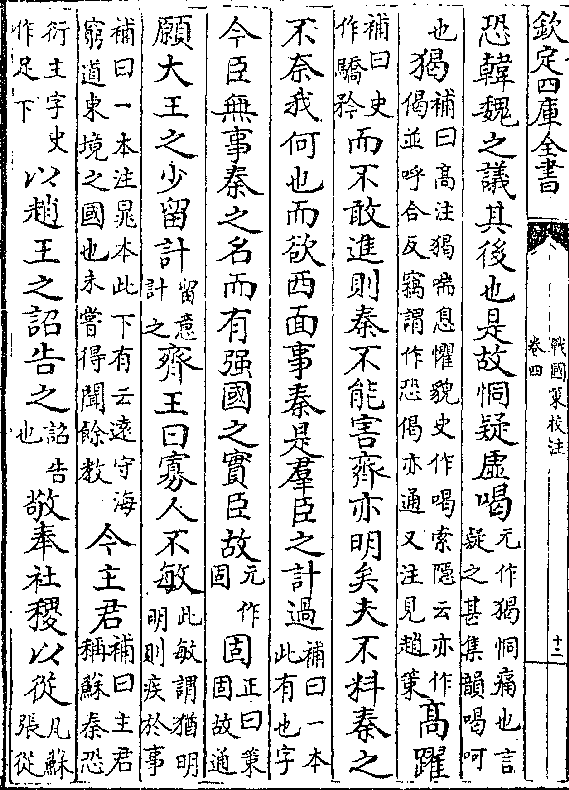 欽定四庫全書
戰國策校注
卷四
十二
恐韓魏之議其後也是故恫疑虛喝元作猲恫痛也言疑之甚集韻喝呵
也猲補曰高注猲喘息懼貌史作喝索隱云亦作偈並呼合反竊謂作恐偈亦通又注見趙策高躍
補曰史作驕矜而不敢進則秦不能害齊亦明矣夫不料秦之
不奈我何也而欲西面事秦是羣臣之計過補曰一本此有也字
今臣無事秦之名而有强國之實臣故元作固固正曰策固故通
願大王之少留計留意計之齊王曰寡人不敏此敏謂猶明明則疾於事
補曰一本注晁本此下有云逺守海窮道東境之國也未嘗得聞餘教今主君補曰主君稱蘇秦恐
衍主字史作足下以趙王之詔告之詔告也敬奉社稷以從凡蘇張從